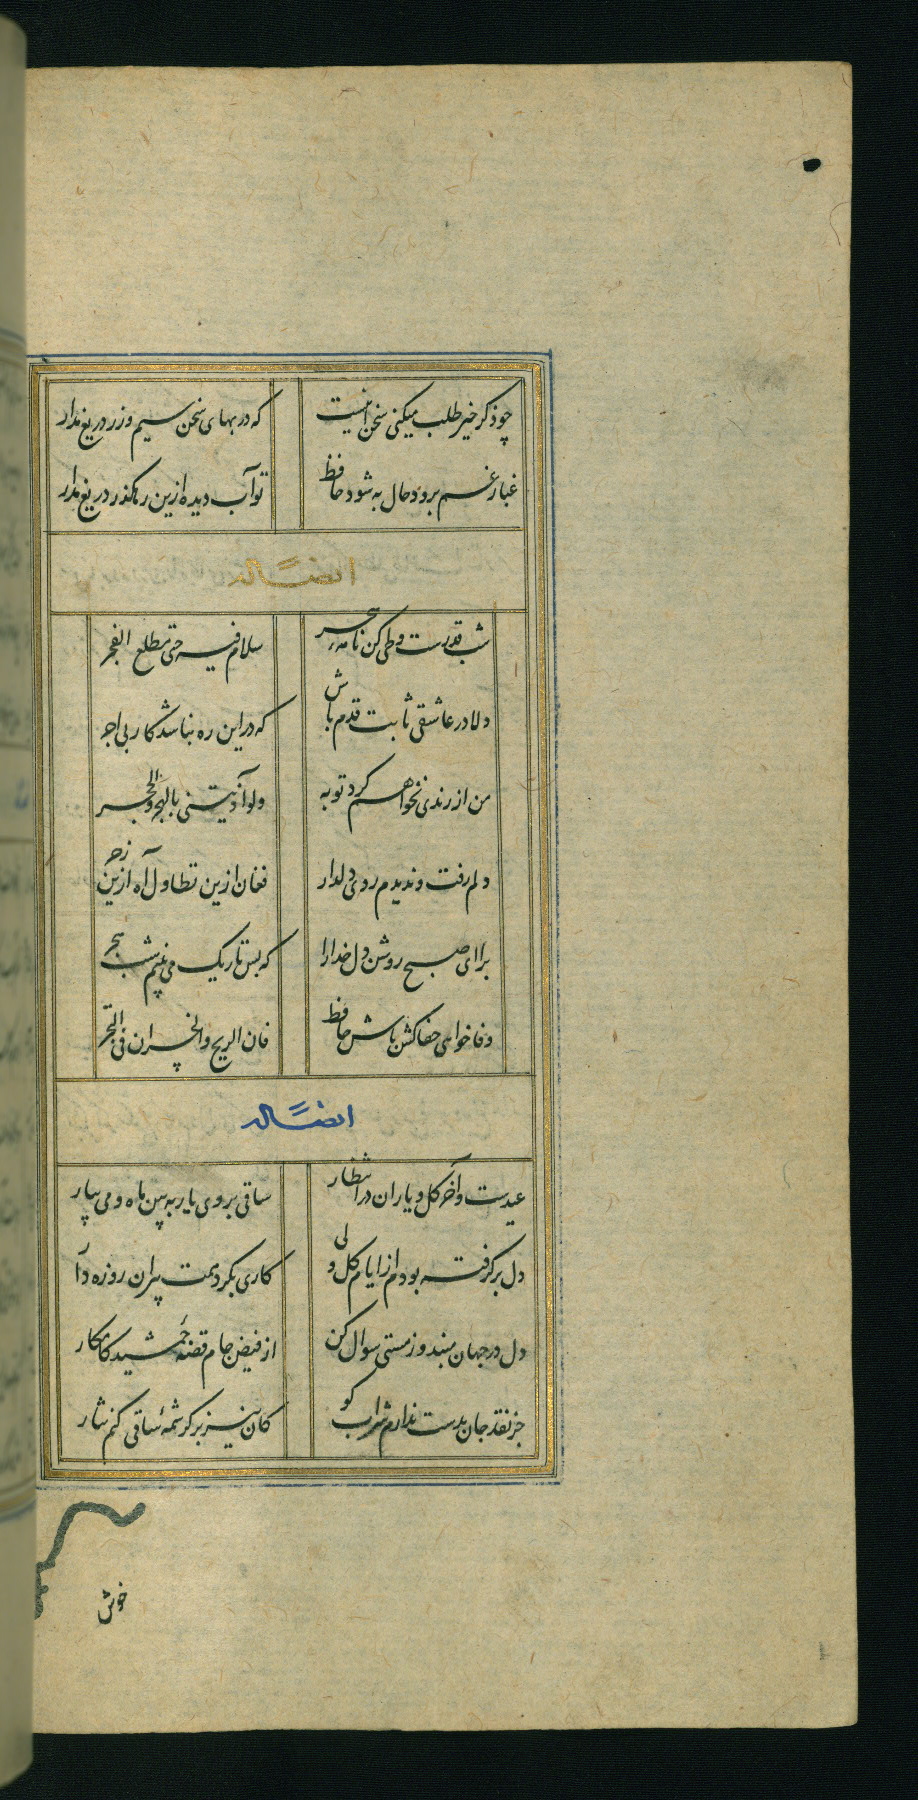 چو ذکر خیر طلب میکنی سخن اینست که در بهای سخن سیم و زر دریغ مدار
غبار غم برود حال به شود حافظ تو آب دیده ازین رهگذر دریغ مدار
ایضاً له
شب قدرست و طی کن نامه هجر سلام فیه حتی مطلع الفجر
دلا در عاشقی ثابت قدم باش که در این ره نباشد کار بی اجر
من از رندی نخواهم کرد توبه ولو آذیتنی بالهجر والحجر
دلم رفت و ندیدم روی دلدار فغان ازین تطاول آه ازین زجر
برا ای صبح روشن دل خدارا که بس تاریک می بینم شب هجر
وفا خواهی جفاکش باش حافظ فان الربح والخسران فی التجر
ایضاً له
عیدست و آخر گل و یاران در انتظار ساقی بروی یار به بین ماه و می بیار
دل برگرفته بودم از ایام گل ولی کاری بکرد همت پیران روزه دار
دل در جهان مبند و ز مستی سوال کن از فیض جام قصهٔ جمشید کامکار
جز نقد جان بدست ندارم شراب کو کان نیز بر کرشمهٔ ساقی کنم نثار
خوش